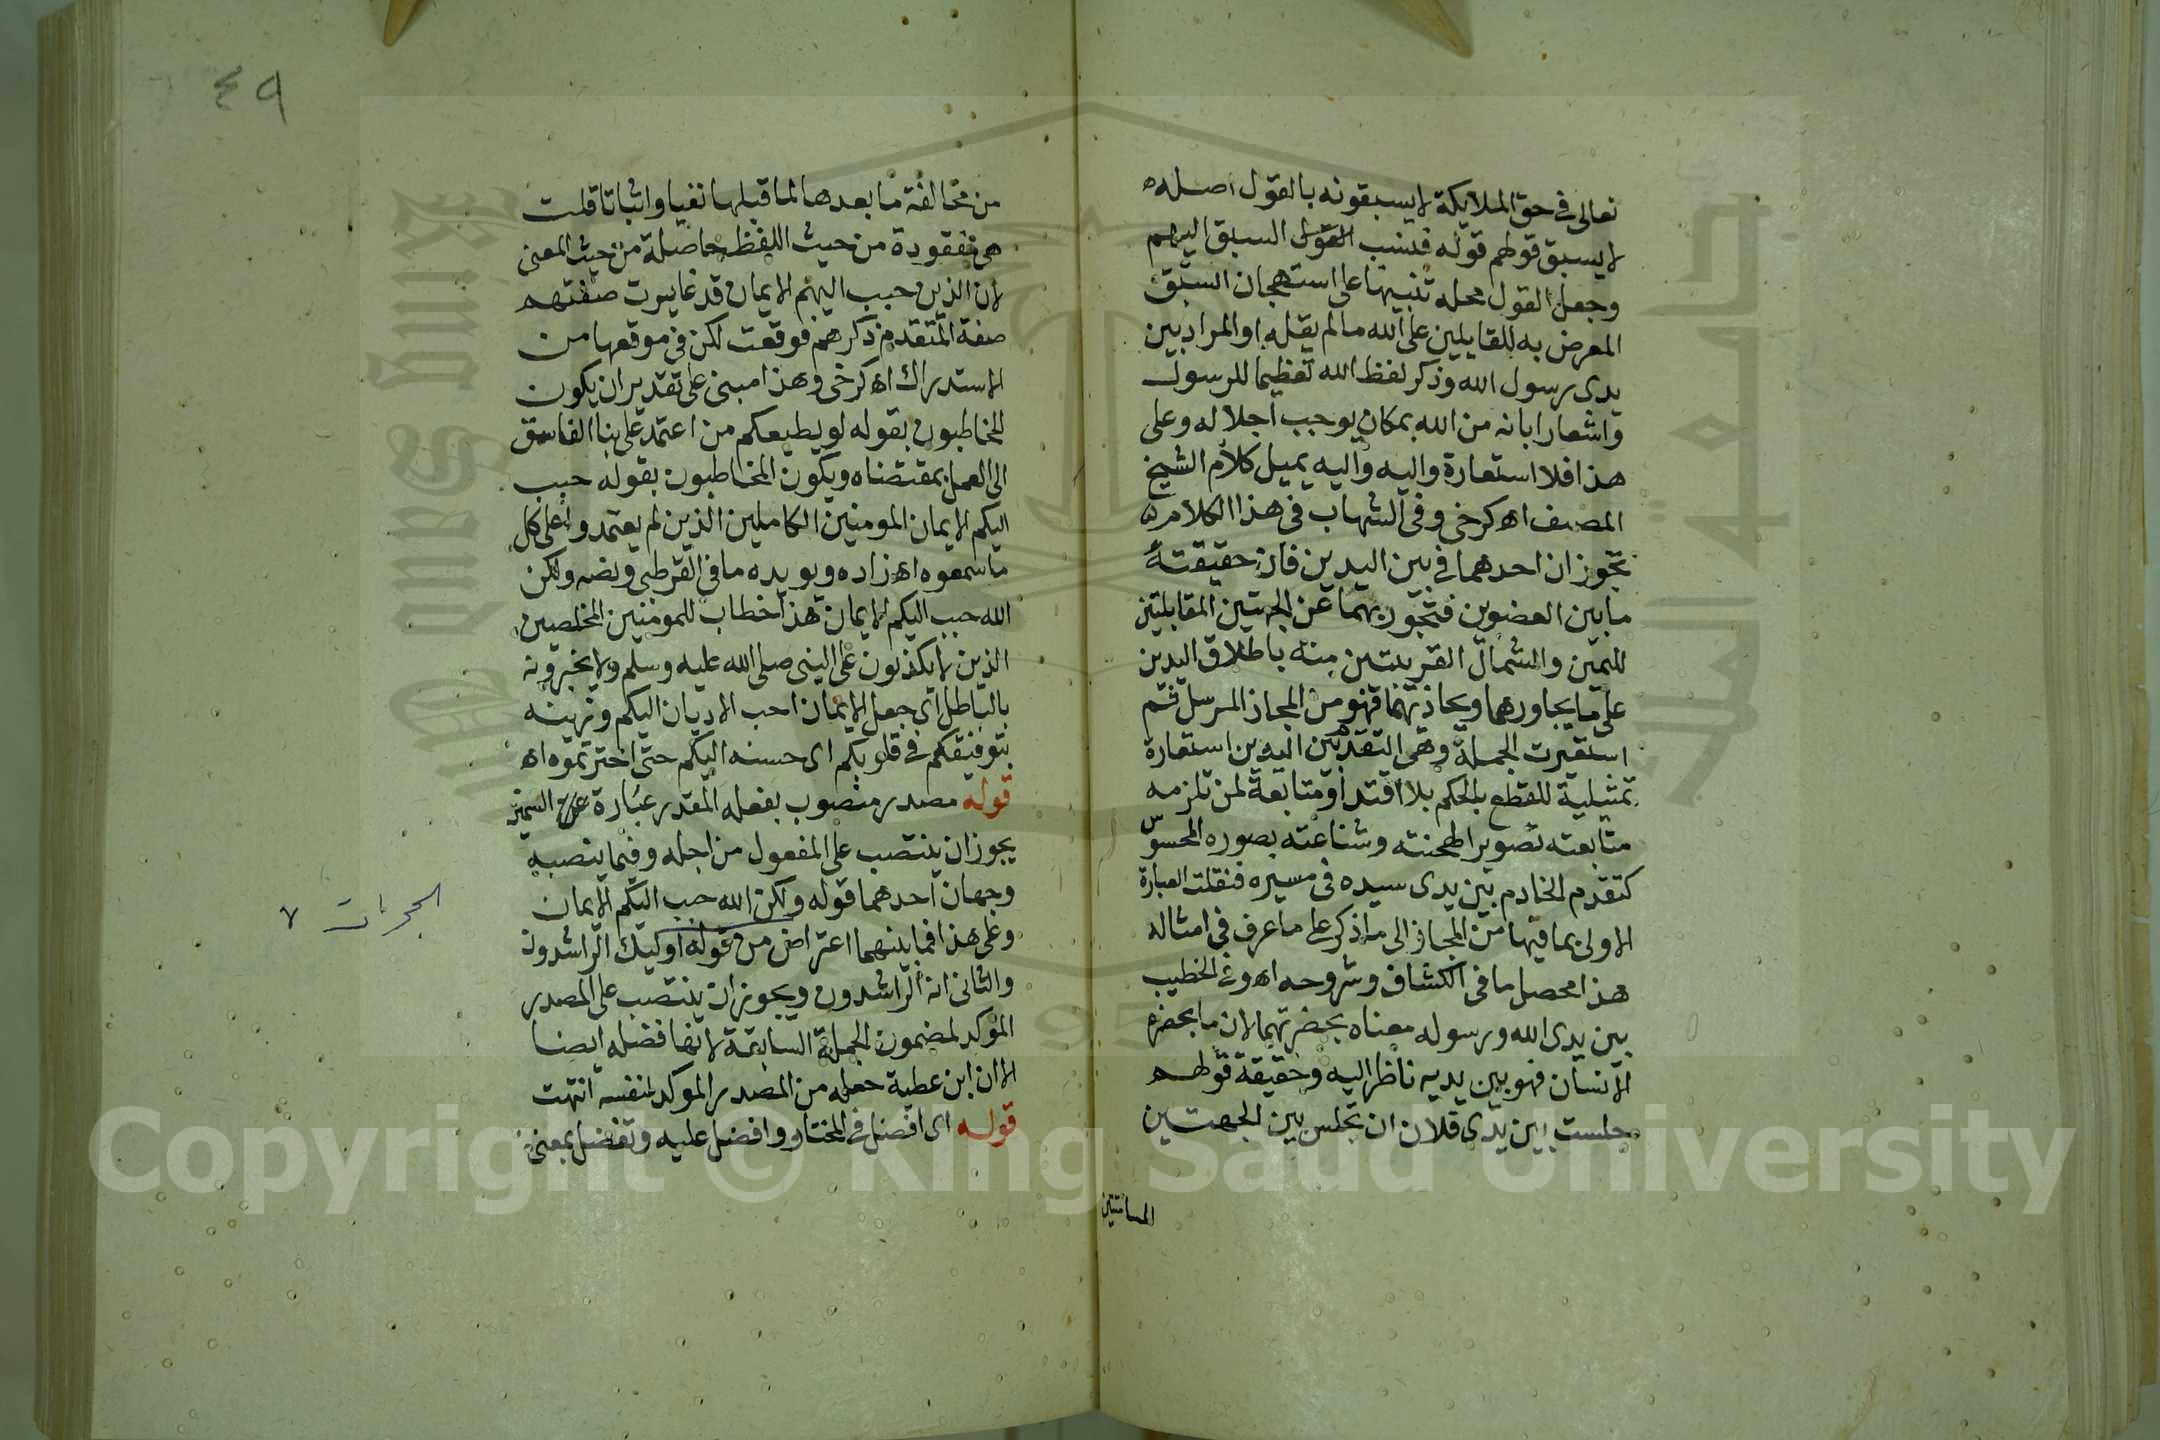 تعالى في حق الملايكة لا يسبقونه بالقول اصله
لا يسبق قولهم قوله فنسب القول السبق اليهم
وجعل القول محله تنبيها على استهجان السبق
المعرض به للقايلين على الله ما لم يقله او المراد بين
يدي رسول الله وذكر لفظ الله تعظيما للرسول
واشعارا بانه من الله بمكان يوجب اجلاله وعلى
هذا فلا استعارة واليه واليه يميل كلام الشيخ
المصنف اه كرخي وفي الشهاب في هذا الكلام
تجوزان احدهما في بين اليدين فان حقيقته
ما بين العضوين فتجوز بهما عن الجهتين المقابلتين
لليمين والشمال القريبتين منه باطلاق اليدين
على ما يجاورهما ويحاذيهما فهو من المجاز المرسل ثم
استعيرت الجملة وهي التقدم بين اليدين استعارة
تمثيلية للقطع بالحكم بلا اقتدا ومتابعة لمن تلزمه
متابعته تصويرا لهجنته وشناعته بصوره المحسوس
كتقدم الخادم بين يدي سيده في مسيره فنقلت العبارة
الاولى بما فيها من المجاز الى ما ذكر على ما عرف في امثاله
هذا محصل ما في الكشاف وشروحه اه وفي الخطيب
بين يدي الله ورسوله معناه بحضرتهما لان ما بحضره
الانسان فهو بين يديه ناظر اليه وحقيقة قولهم
جلست بين يدي فلان ان تجلس بين الجهتين
المسامتتين
٤٩
من مخالفة ما بعدها لما قبلها نفيا واثباتا قلت
هي مفقودة من حيث اللفظ حاصلة من حيث المعنى
لان الذين حبب اليهم الايمان قد غايرت صفتهم
صفة المتقدم ذكرهم فوقعت لكن في موقعها من
الاستدراك اه كرخي وهذا مبني على تقدير ان يكون
المخاطبون بقوله لو يطيعكم من اعتمد على نبا الفاسق
الى العمل بمقتضاه ويكون المخاطبون بقوله حبب
اليكم الايمان المومنين الكاملين الذين لم يعتمدوا على كل
ما سمعوه اه زاده ويويده ما في القرطبي ونصه ولكن
الله حبب اليكم الايمان هذا خطاب للمومنين المخلصين
الذين لا يكذبون على النبي صلى الله عليه وسلم ولا يخبرونه
بالباطل اي جعل الايمان احب الاديان اليكم وزينه
بتوفيقكم في قلوبكم اي حسنه اليكم حتى اخترتموه اه
قوله مصدر منصوب بفعله المقدر عبارة السمين
يجوز ان ينتصب على المفعول من اجله وفيما ينصبه
وجهان احدهما قوله ولكن الله حبب اليكم الايمان
وعلى هذا فما بينهما اعتراض من قوله اوليك الراشدون
والثاني انه الراشدون ويجوز ان ينتصب على المصدر
الموكد لمضمون الجملة السابقة لانها فضل ايضا
الا ان ابن عطية جعله من المصدر الموكد لنفسه انتهت
قوله اي افضل في المختار وافضل عليه وتفضل بمعنى
الحجرات ٧
King Saud University
جامعة الملك سعود
1957
Copyright © King Saud University